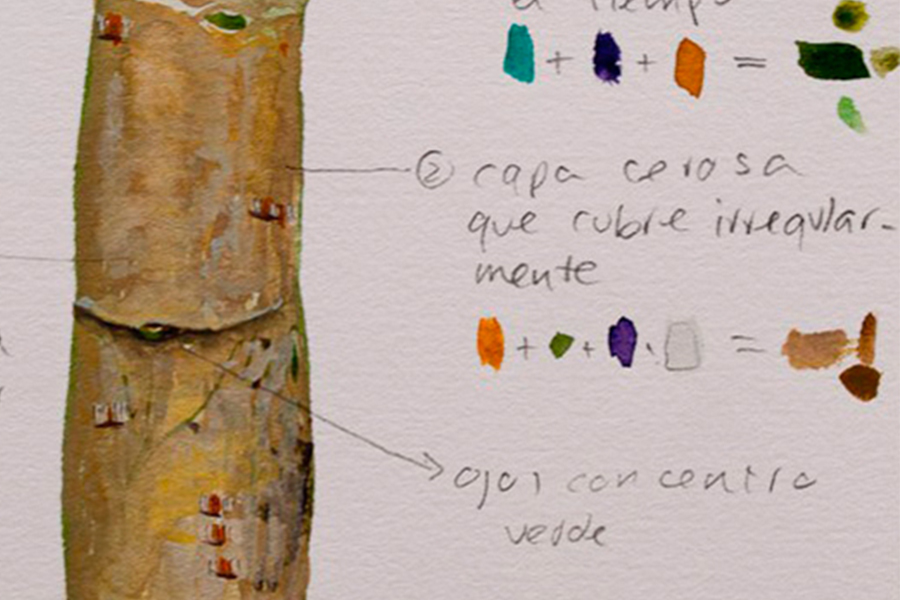 ② capa cerosa
que cubre irregular-
mente
ojos con centro
verde